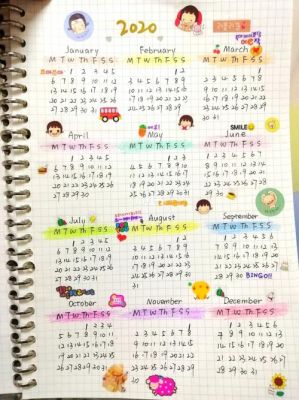 2020
January
M T W Th F S S
1 2 3 4 5
6 7 8 9 10 11 12
13 14 15 16 17 18 19
20 21 22 23 24 25 26
27 28 29 30 31
February
M T W Th F S S
1 2
3 4 5 6 7 8 9
10 11 12 13 14 15 16
17 18 19 20 21 22 23
24 25 26 27 28 29
March
M T W Th F S S
1
2 3 4 5 6 7 8
9 10 11 12 13 14 15
16 17 18 19 20 21 22
23 24 25 26 27 28 29
30 31
April
M T W Th F S S
1 2 3 4 5
6 7 8 9 10 11 12
13 14 15 16 17 18 19
20 21 22 23 24 25 26
27 28 29 30
May
M T W Th F S S
1 2 3
4 5 6 7 8 9 10
11 12 13 14 15 16 17
18 19 20 21 22 23 24
25 26 27 28 29 30 31
SMILE
June
M T W Th F S S
1 2 3 4 5 6 7
8 9 10 11 12 13 14
15 16 17 18 19 20 21
22 23 24 25 26 27 28
29 30
July
M T W Th F S S
1 2 3 4 5
6 7 8 9 10 11 12
13 14 15 16 17 18 19
20 21 22 23 24 25 26
27 28 29 30 31
August
M T W Th F S S
1 2
3 4 5 6 7 8 9
10 11 12 13 14 15 16
17 18 19 20 21 22 23
24 25 26 27 28 29 30
31
September
M T W Th F S S
1 2 3 4 5 6
7 8 9 10 11 12 13
14 15 16 17 18 19 20
21 22 23 24 25 26 27
28 29 30 BINGO!!
October
M T W Th F S S
1 2 3 4
5 6 7 8 9 10 11
12 13 14 15 16 17 18
19 20 21 22 23 24 25
26 27 28 29 30 31
November
M T W Th F S S
1
2 3 4 5 6 7 8
9 10 11 12 13 14 15
16 17 18 19 20 21 22
23 24 25 26 27 28 29
30
December
M T W Th F S S
1 2 3 4 5 6
7 8 9 10 11 12 13
14 15 16 17 18 19 20
21 22 23 24 25 26 27
28 29 30 31